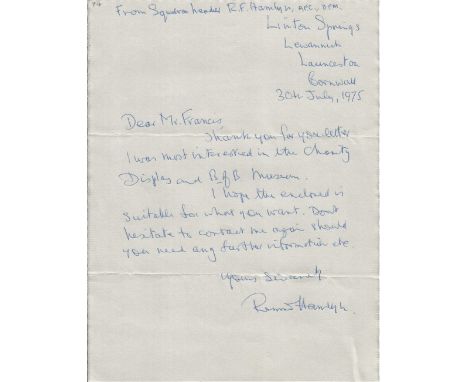 From Squadron Leader R.F. Hamlyn, AFC., DFM.
Linton Springs
Lewannick
Launceston
Cornwall
30th July, 1975
Dear Mr. Francis,
Thank you for your letter
I was most interested in the Charity
Display and B of B Museum.
I hope the enclosed is
suitable for what you want. Dont
hesitate to contact me again should
you need any further information etc.
Yours Sincerely
Hamlyn.